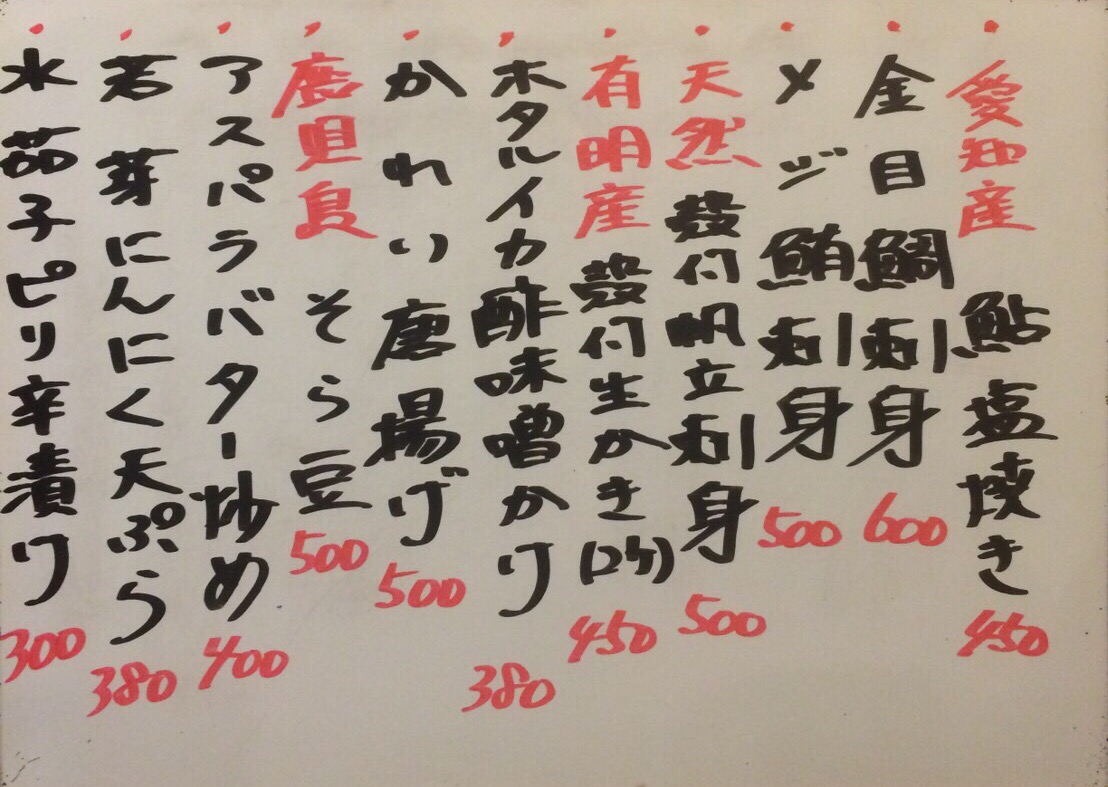 愛知産 鮎塩焼き 450
金目鯛刺身 600
メジ鮪刺身 500
天然 殻付帆立刺身 500
有明産 殻付生かき(2ケ) 450
ホタルイカ酢味噌かけ 380
かれい唐揚げ 500
鹿児島 そら豆 500
アスパラバター炒め 400
若芽にんにく天ぷら 380
水茄子ピリ辛漬け 300